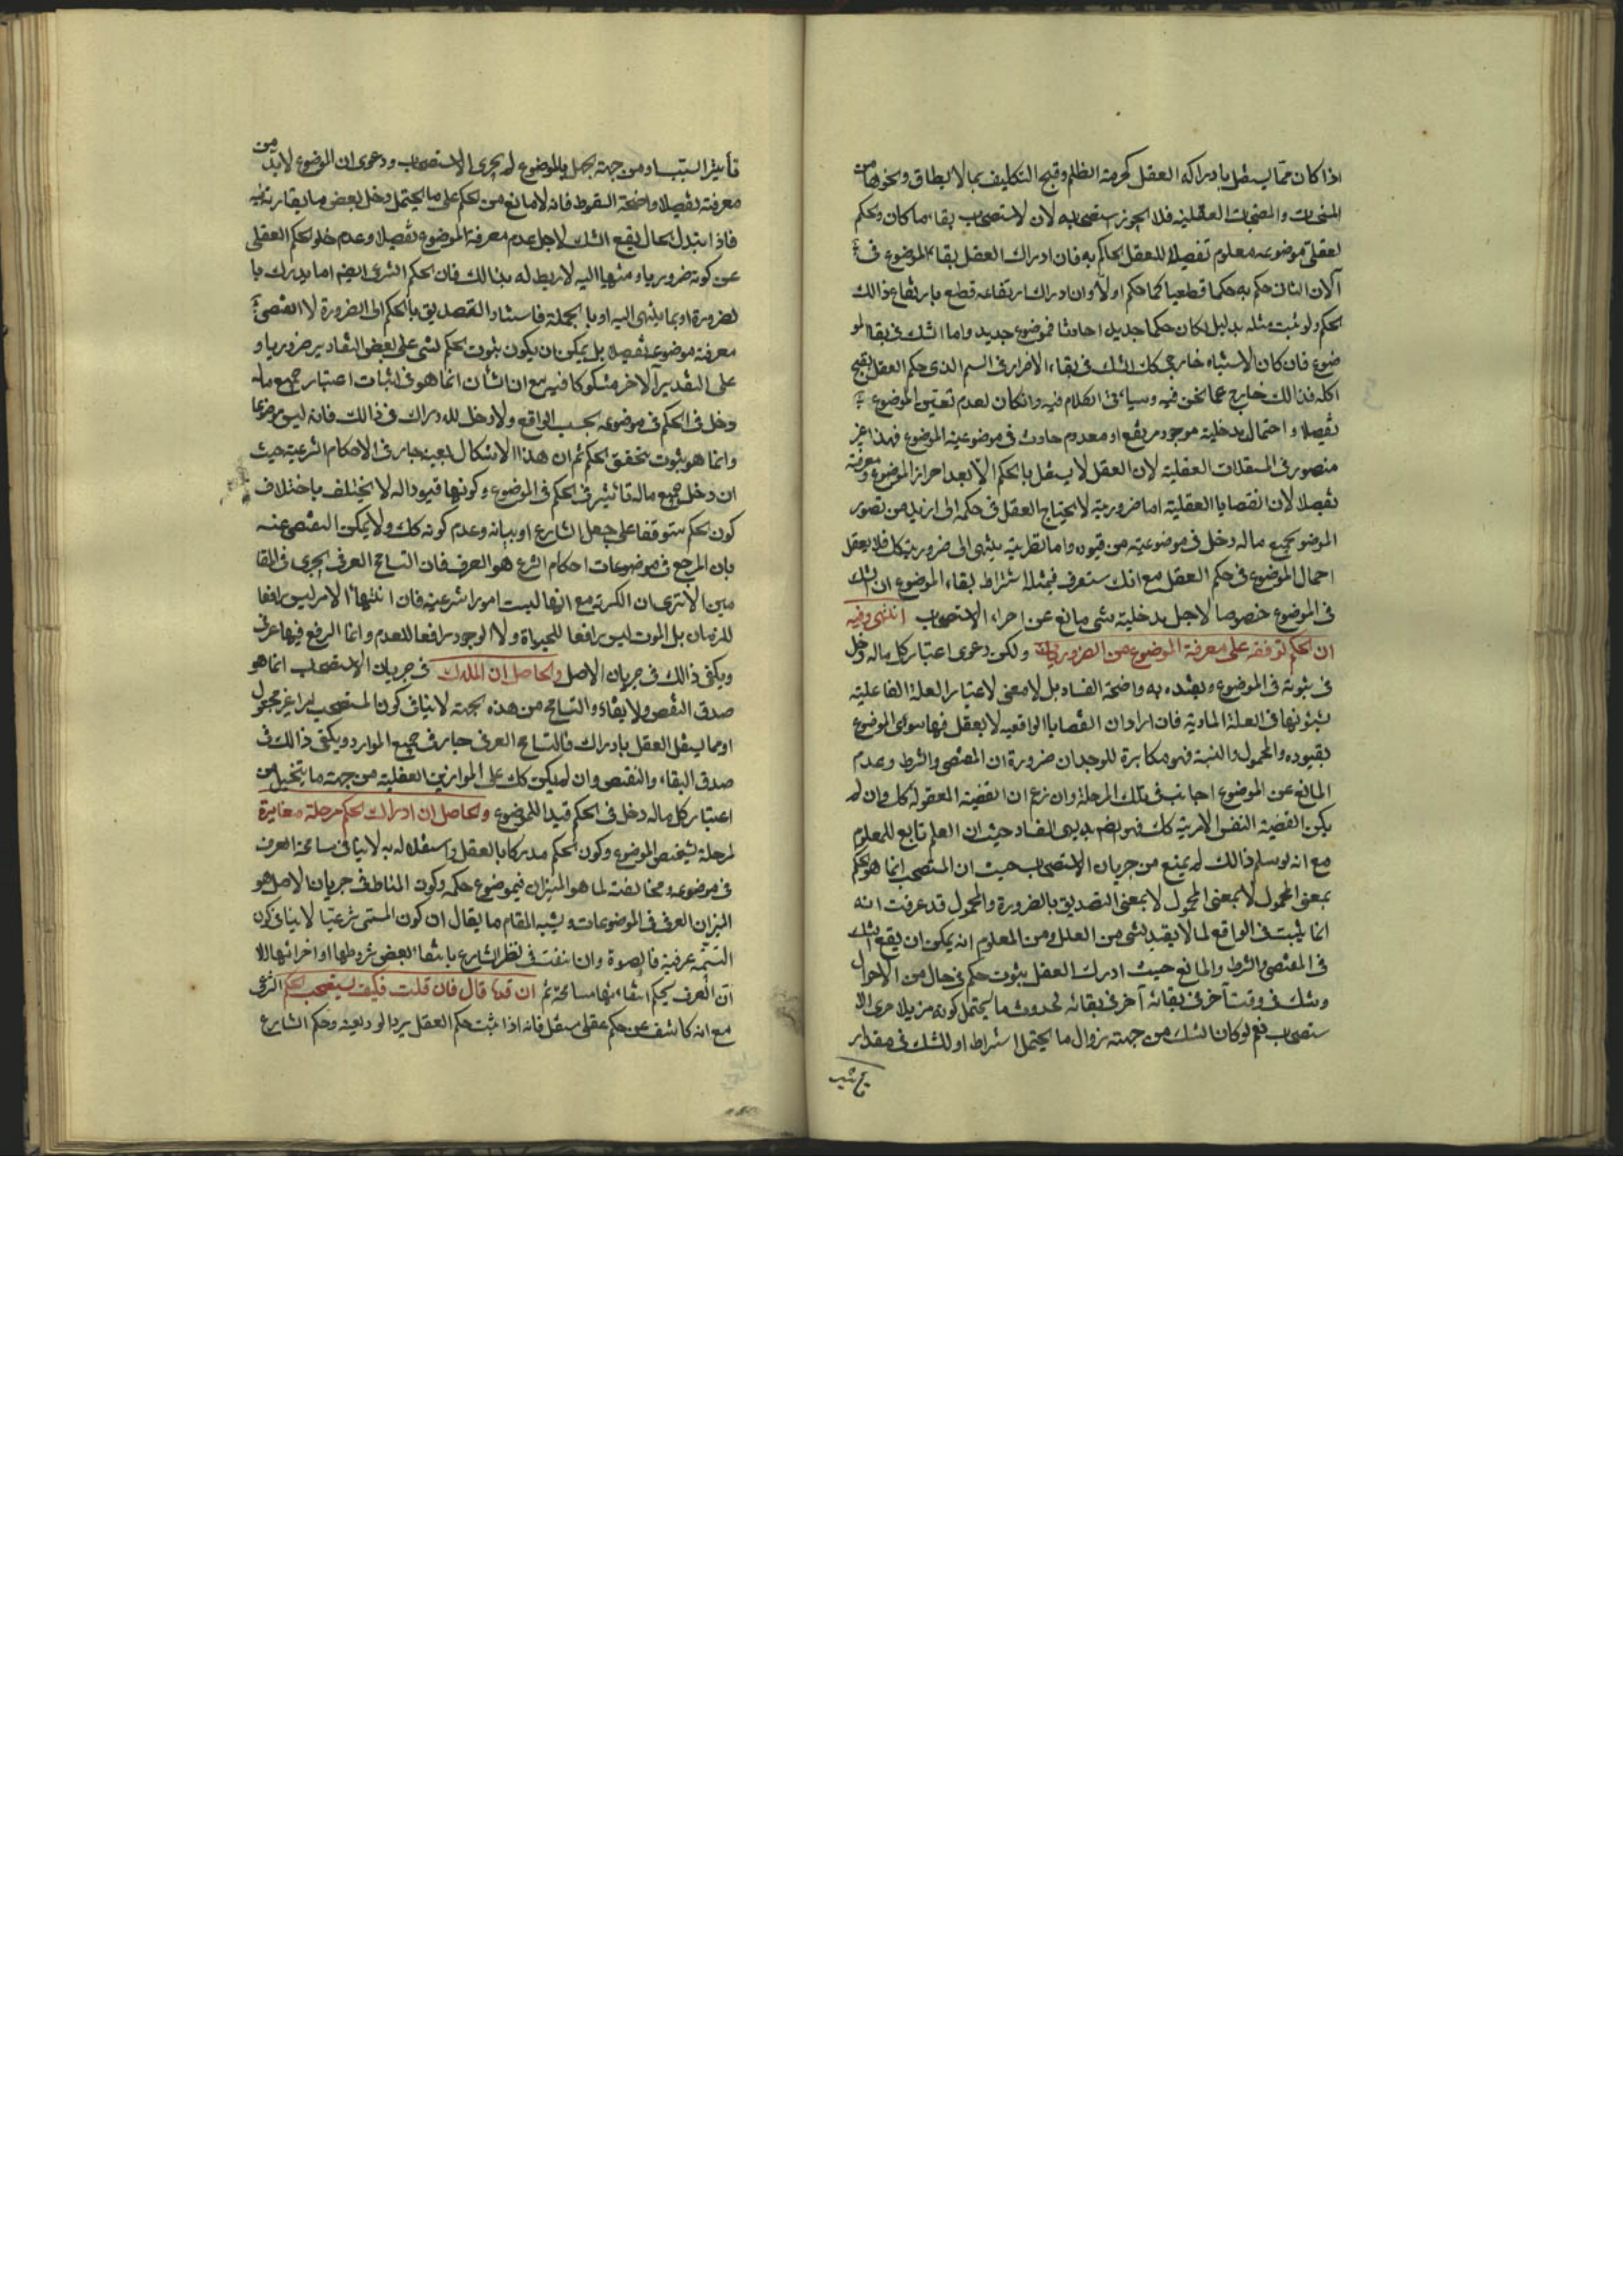 اذا كان مما يستقل بادراكه العقل كحرمة الظلم وقبح التكليف بما لا يطاق ونحوهما من
المحسنات والمقبحات العقلية فلا يجوز استصحابه لان الاستصحاب بقاء ما كان والحكم
العقلى موضوعه معلوم تفصيلا للعقل الحاكم به فان ادراك العقل بقاء الموضوع فى
الآن الثانى حكم به حكما قطعيا كما حكم اولا وان ادراك ارتفاعه قطع بارتفاع ذالك
الحكم ولو ثبت مثله بدليل لكان حكما جديدا حادثا فى موضوع جديد واما الشك فى بقاء المو
ضوع فان كان لاشتباه خارجى كالشك فى بقاء الاضرار فى السم الذى حكم العقل بقبح
اكله فذالك خارج عما نحن فيه وسيأتى الكلام فيه وان كان لعدم تعيين الموضوع
تفصيلا و احتمال مدخلية موجود مرتفع او معدوم حادث فى موضوعية الموضوع فهذا غير
متصور فى المستقلات العقلية لان العقل لا يستقل بالحكم الا بعد احراز الموضوع ومعرفته
تفصيلا لان القضايا العقلية اما ضرورية لا يحتاج العقل فى حكمه الى ازيد من تصور
الموضوع بجميع ماله دخل فى موضوعيته من قيوده واما نظرية ينتهى الى ضرورية كك فلا يعقل
اجمال الموضوع فى حكم العقل مع انك ستعرف فى مسئلة اشتراط بقاء الموضوع ان الشك
فى الموضوع خصوصا لاجل مدخلية شىء مانع عن اجراء الاستصحاب انتهى وفيه
ان الحكم توقفه على معرفة الموضوع من الضروريات ولكن دعوى اعتبار كل ماله دخل
فى ثبوته فى الموضوع وتقيده به واضحة الفساد بل لا معنى لاعتبار العلة الفاعلية
بشئونها فى العلة المادية فان اراد ان القضايا الواقعيه لا يعقل فيها سوى الموضوع
بقيوده والمحمول والنسبة فهو مكابرة للوجدان ضرورة ان المقتضى والشرط وعدم
المانع عن الموضوع اجانب فى تلك المرحلة وان زعم ان القضية المعقولة كك وان لم
يكن القضية النفس الامرية كك فهو ايضم بديهى الفساد حيث ان العلم تابع للمعلوم
مع انه لو سلم ذالك لم يمنع من جريان الاستصحاب حيث ان المستصحب انما هو الحكم
بمعنى المحمول لا بمعنى المحمول لا بمعنى التصديق بالضرورة والمحمول قد عرفت انه
انما يثبت فى الواقع لما لا يقيد بشىء من العلل ومن المعلوم انه يمكن ان يقع الشك
فى المقتضى والشرط والمانع حيث ادرك العقل بثبوت حكم فى حال من الاحوال
وشك فى وقت آخر فى بقائه آخر فى بقائه لحدوث ما يحتمل كونه مزيلا جرى الا
ستصحاب نعم لو كان الشك من جهته زوال ما يحتمل اشتراط او للشك فى مقدار
تأثير السبب او من جهة الجهل بالموضوع لم يجرى الاستصحاب ودعوى ان الموضوع لا بد من
معرفته تفصيلا واضحة السقوط فانه لا مانع من الحكم على ما يحتمل دخل بعض ما يقارنه فيه
فاذا تبدل الحال يقع الشك لاجل عدم معرفة الموضوع تفصيلا وعدم خلو الحكم العقلى
عن كونه ضروريا او منتهيا اليه لا ربط له بذالك فان الحكم الشرعى ايضم اما يدرك با
لضرورة او بما ينتهى اليه او بالجملة فاستناد التصديق بالحكم الى الضرورة لا اقتضى
معرفة موضوعه تفصيلا بل يمكن ان يكون ثبوت الحكم لشىء على بعض التقادير ضروريا و
على التقدير الآخر مشكوكا فيه مع ان الشأن انما هو فى اثبات اعتبار جميع ماله
دخل فى الحكم فى موضوعه بحسب الواقع ولا دخل للادراك فى ذالك فانه ليس موضوعا
وانما هو ثبوت يتحقق الحكم ثم ان هذا الاشكال بعينه جار فى الاحكام الشرعية حيث
ان دخل جميع ماله تأثير فى الحكم فى الموضوع وكونها قيودا له لا يختلف باختلاف
كون الحكم متوقفا على جعل الشارع او بيانه وعدم كونه كك ولا يمكن التفصى عنه
بان المرجع فى موضوعات احكام الشرع هو العرف فان التسامح العرفى يجرى فى المقا
مين الا ترى ان الكرية مع انها ليست امورا شرعية فان انتهاء الامر ليس رافعا
للزمان بل الموت ليس رافعا للحياة ولا الوجود رافعا للعدم وانما الرفع فيها عرفى
ويكفى ذالك فى جريان الاصل والحاصل ان الملاك فى جريان الاستصحاب انما هو
صدق النقض والابقاء والتسامح من هذه الجهة لا ينافى كون المستصحب امرا غير مجعول
او مما يستقل العقل بادراك فالتسامح العرفى جار فى جميع الموارد ويكفى ذالك فى
صدق البقاء والنقض وان لم يكن كك على الموازين العقلية من جهة ما يتخيل من
اعتبار كل ماله دخل فى الحكم قيدا للموضوع والحاصل ان ادراك الحكم مرحلة مغايرة
لمرحلة تشخيص الموضوع وكون الحكم مدركا بالعقل واستقلاله به لا ينافى مسامحة العرف
فى موضوعه ومخالفته لما هو الميزان فى موضوع حكمه وكون المناط فى جريان الاصل هو
الميزان العرفى فى الموضوعات ويشبه المقام ما يقال ان كون المسمى شرعيا لا ينافى كون
التسمية عرفية فالصلوة وان انتفت فى نظر الشارع بانتفاء بعض شروطها او اجزائها الا
ان العرف يحكم ابقائها مسامحة ثم ان قدها قال فان قلت فكيف يستصحب الحكم الشرعى
مع انه كاشف عن حكم عقلى مستقل فانه اذا ثبت حكم العقل برد الوديعة وحكم الشارع